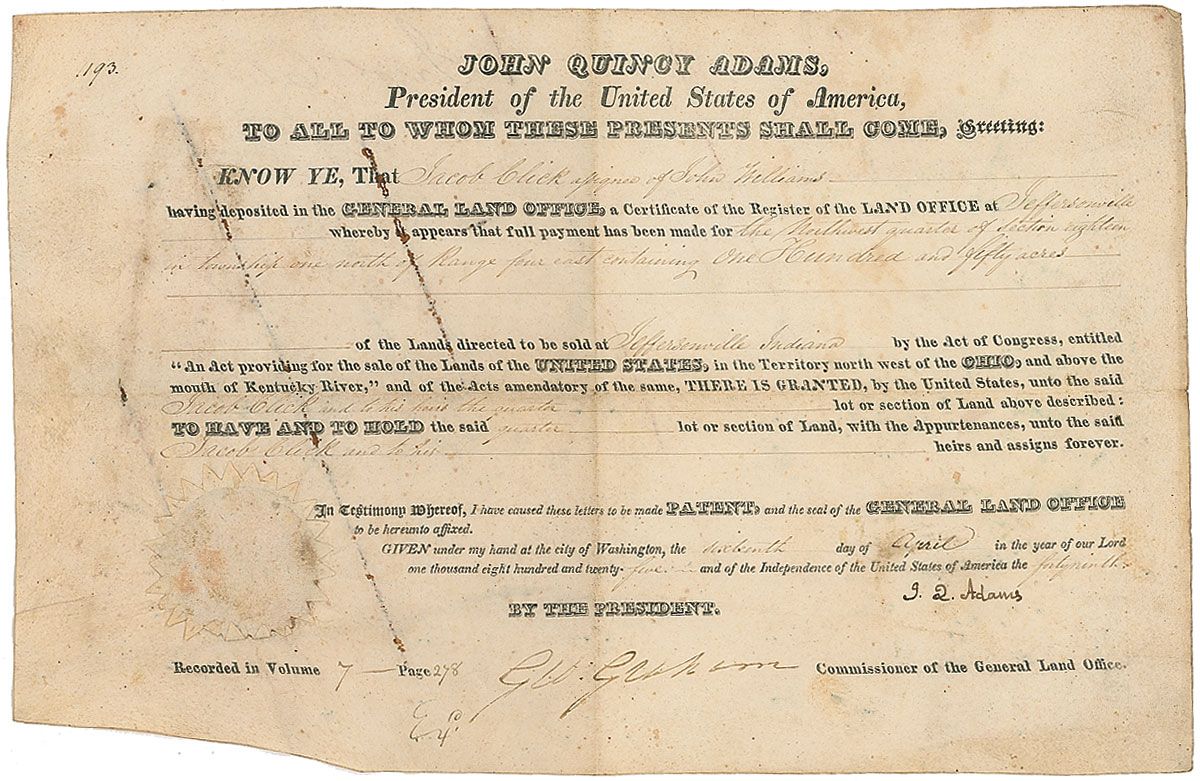 193.
JOHN QUINCY ADAMS,
President of the United States of America,
TO ALL TO WHOM THESE PRESENTS SHALL COME, Greeting:
KNOW YE, That Jacob Click assignee of John Williams
having deposited in the GENERAL LAND OFFICE, a Certificate of the Register of the LAND OFFICE at Jeffersonville
whereby it appears that full payment has been made for the Northwest quarter of Section eighteen
in township one north of Range four east containing One Hundred and fifty acres
of the Lands directed to be sold at Jeffersonville Indiana by the Act of Congress, entitled
“An Act providing for the sale of the Lands of the UNITED STATES, in the Territory north west of the OHIO, and above the
mouth of Kentucky River,” and of the Acts amendatory of the same, THERE IS GRANTED, by the United States, unto the said
Jacob Click and to his heirs the quarter lot or section of Land above described:
TO HAVE AND TO HOLD the said quarter lot or section of Land, with the Appurtenances, unto the said
Jacob Click and to his heirs and assigns forever.
In Testimony Whereof, I have caused these letters to be made PATENT, and the seal of the GENERAL LAND OFFICE
to be hereunto affixed.
GIVEN under my hand at the city of Washington, the sixteenth day of April in the year of our Lord
one thousand eight hundred and twenty-five and of the Independence of the United States of America the forty ninth.
J. Q. Adams
BY THE PRESIDENT.
Recorded in Volume 7 Page 278 Geo: Graham Commissioner of the General Land Office.